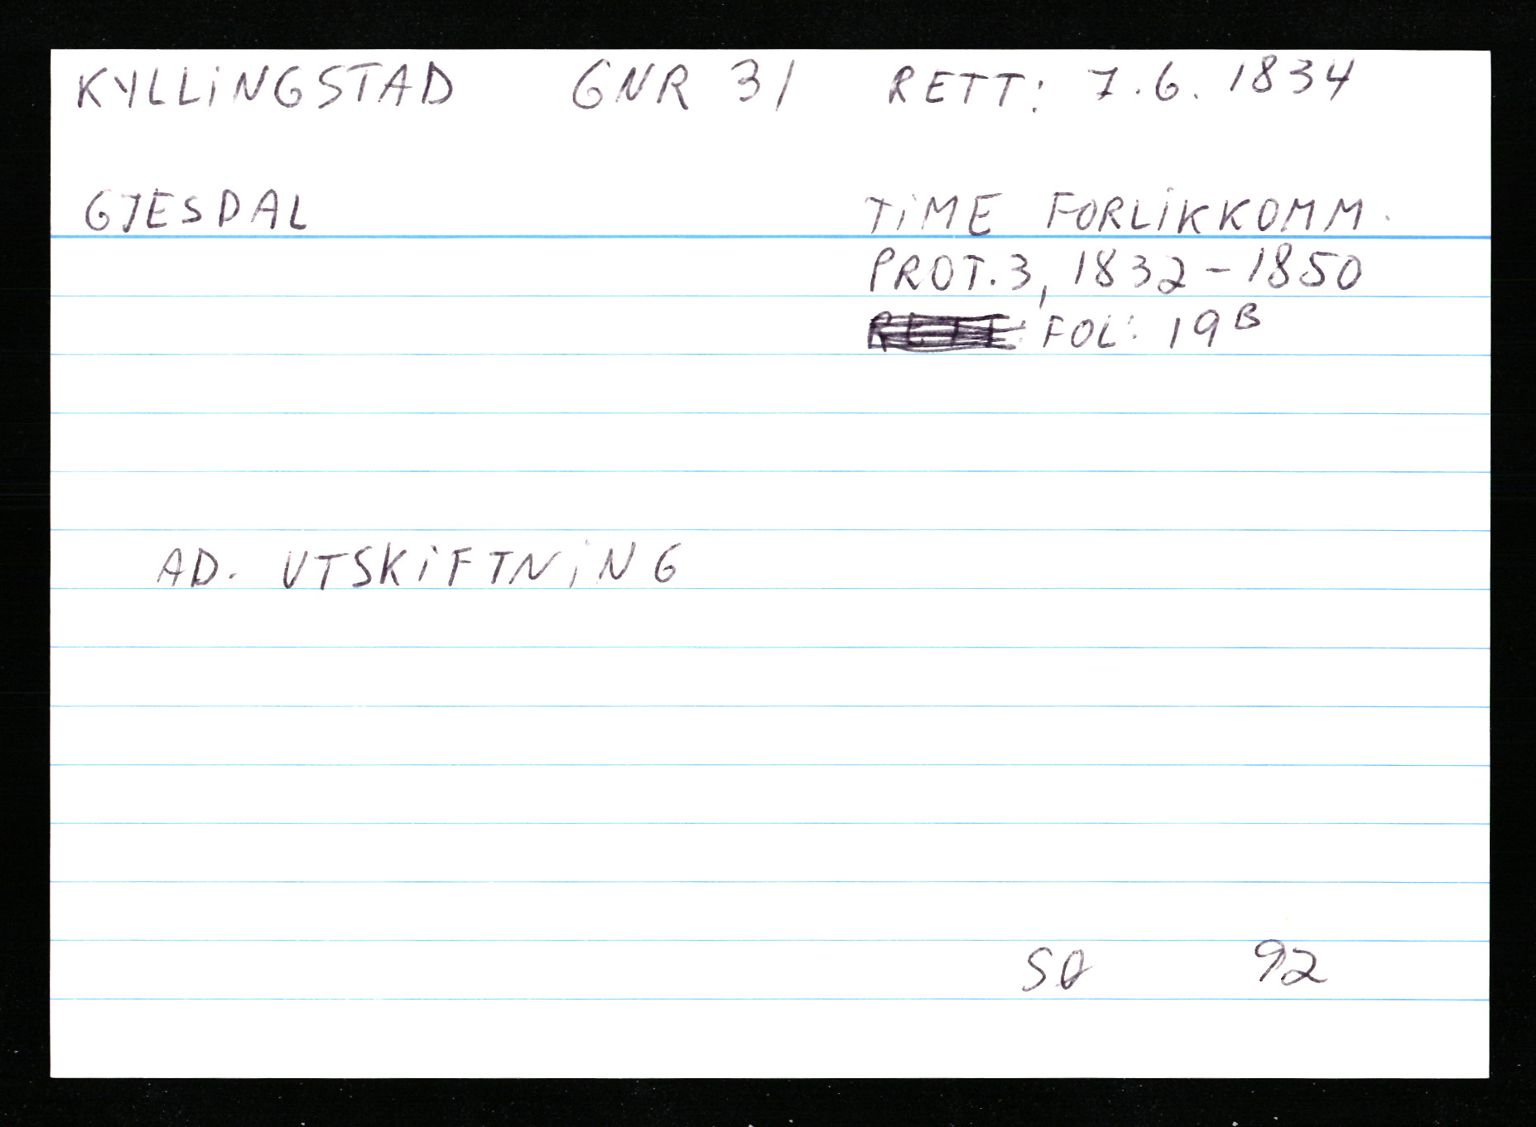 KYLLiNGSTAD GNR 31 RETT: 7.6.1834
GJESDAL TiME FORLiKKOMM.
PROT.3, 1832-1850
FOL: 19B
AD. UTSKiFTNiNG
SØ 92